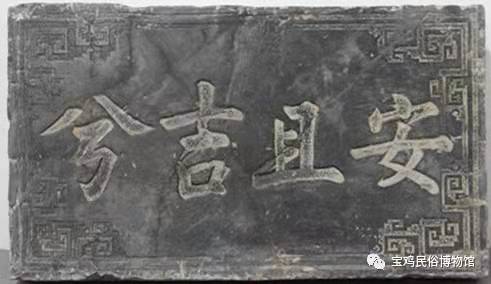 安且吉兮
宝鸡民俗博物馆